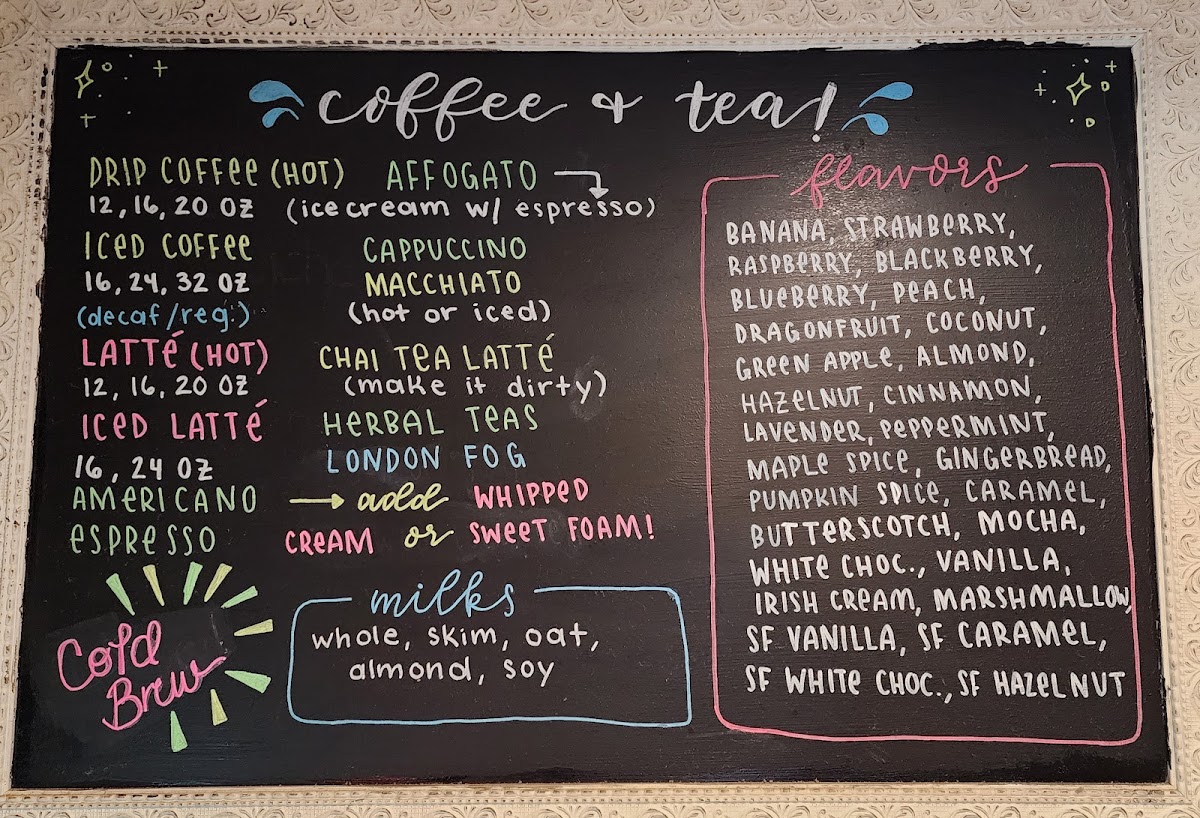 coffee + tea!
DRIP COFFEE (HOT)
12, 16, 20 OZ
ICED COFFEE
16, 24, 32 OZ
(decaf/reg.)
LATTÉ (HOT)
12, 16, 20 OZ
ICED LATTÉ
16, 24 OZ
AMERICANO
ESPRESSO
Cold
Brew
AFFOGATO
(ice cream w/ espresso)
CAPPUCCINO
MACCHIATO
(hot or iced)
CHAI TEA LATTÉ
(make it dirty)
HERBAL TEAS
LONDON FOG
add WHIPPED
CREAM or SWEET FOAM!
milks
whole, skim, oat,
almond, soy
flavors
BANANA, STRAWBERRY,
RASPBERRY, BLACKBERRY,
BLUEBERRY, PEACH,
DRAGONFRUIT, COCONUT,
GREEN APPLE, ALMOND,
HAZELNUT, CINNAMON,
LAVENDER, PEPPERMINT,
MAPLE SPICE, GINGERBREAD,
PUMPKIN SPICE, CARAMEL,
BUTTERSCOTCH, MOCHA,
WHITE CHOC., VANILLA,
IRISH CREAM, MARSHMALLOW,
SF VANILLA, SF CARAMEL,
SF WHITE CHOC., SF HAZELNUT